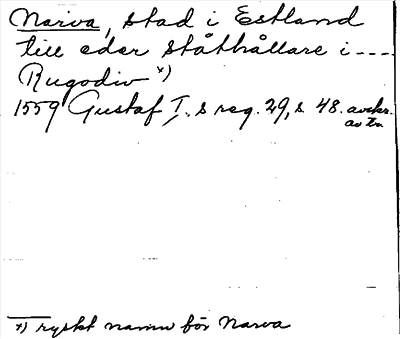 Narva, stad i Estland
till eder ståthållare i ----
Rugodiv *)
1559 Gustaf I. s reg. 29, s. 48. avskr.
av tr.
*) ryskt namn för Narva